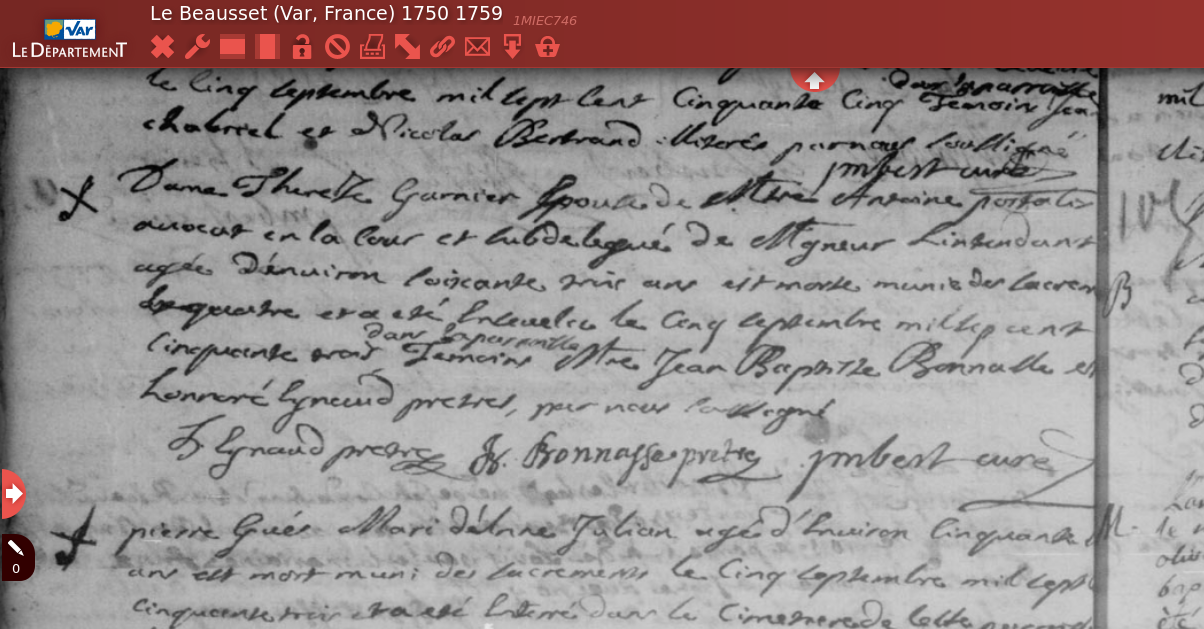 Le Beausset (Var, France) 1750 1759
1MIEC746
VAR
LE DÉPARTEMENT
0
le Cinq septembre mil sept cent Cinquante Cinq Temoins Jean
chabriel et Nicolas Bertrand illiterés par nous soussigné
jmbert curé
Dame Therese Garnier Epouse de Mtre Antoine portalis
avocat en la Cour et subdelegué de Mgneur Lintendant
agée D'environ soixante trois ans est morte munie des sacremens
et a eté Ensevelie le Cinq septembre mil sept cent
dans la paroisse
cinquante trois Temoins Mtre Jean Baptiste Bonnasse et
honnoré Eynaud pretres, par nous soussigné
h Eynaud pretre Bonnasse pretre jmbert curé
pierre Gués Mari d'Anne Julian agé d'Environ Cinquante
ans est mort muni des sacrements le Cinq septembre mil sept
cinquante trois et a eté Enterré dans le Cimetiere de cette paroisse